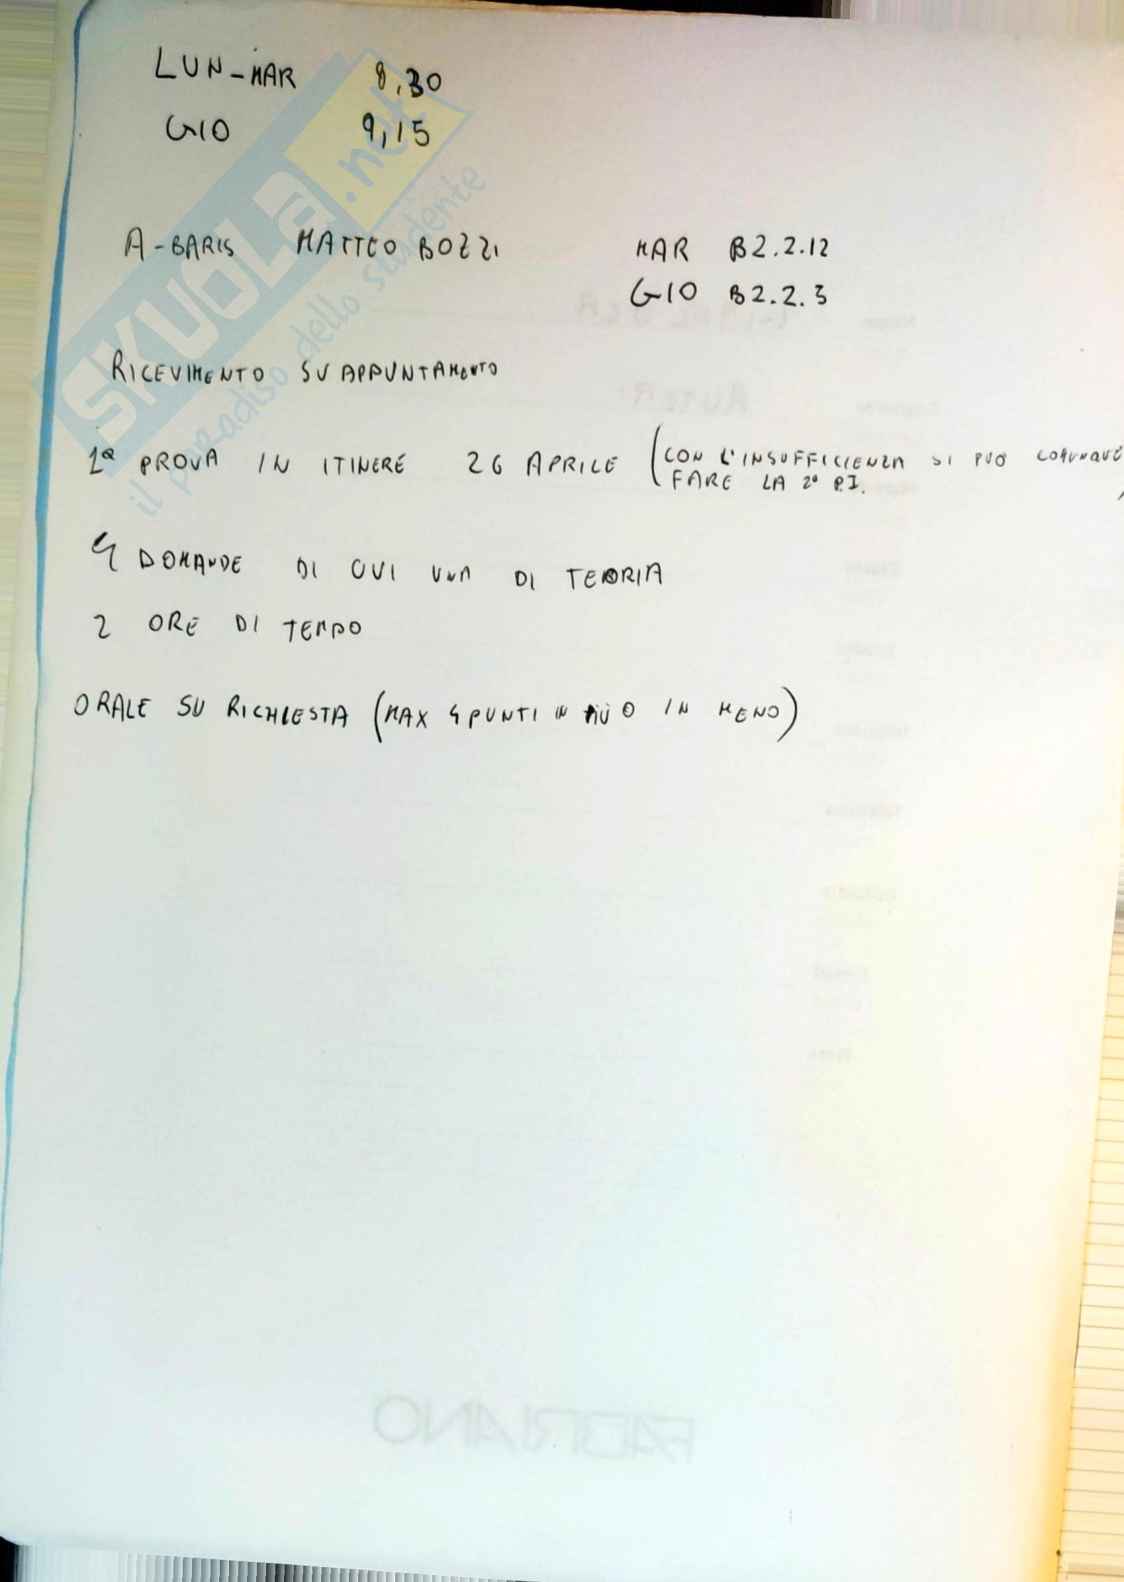 LUN-MAR 8,30
GIO 9,15
A-BARIS MATTEO BOZZI MAR B2.2.12
GIO B2.2.3
RICEVIMENTO SU APPUNTAMENTO
1ª PROVA IN ITINERE 26 APRILE (CON L'INSUFFICIENZA SI PUÒ COMUNQUE
FARE LA 2ª P.I.
4 DOMANDE DI CUI UNA DI TEORIA
2 ORE DI TEMPO
ORALE SU RICHIESTA (MAX 4 PUNTI IN PIÙ O IN MENO)
SKUOLA.net
il paradiso dello studente
FABRIANO